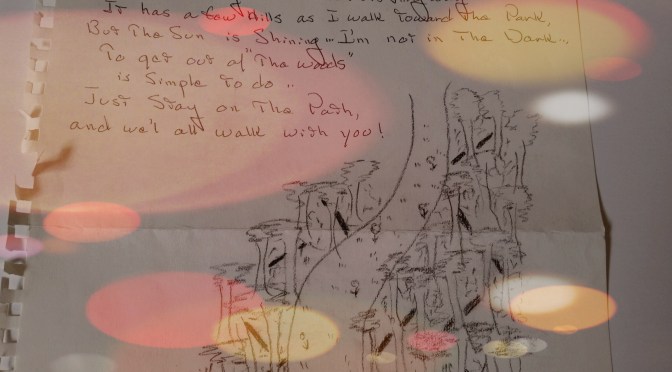 It has a few Hills as I walk toward the Park,
But The Sun is Shining... I'm not in The Dark...
To get out of "The woods"
is Simple to do..
Just Stay on The Path,
and we'l all walk with you!